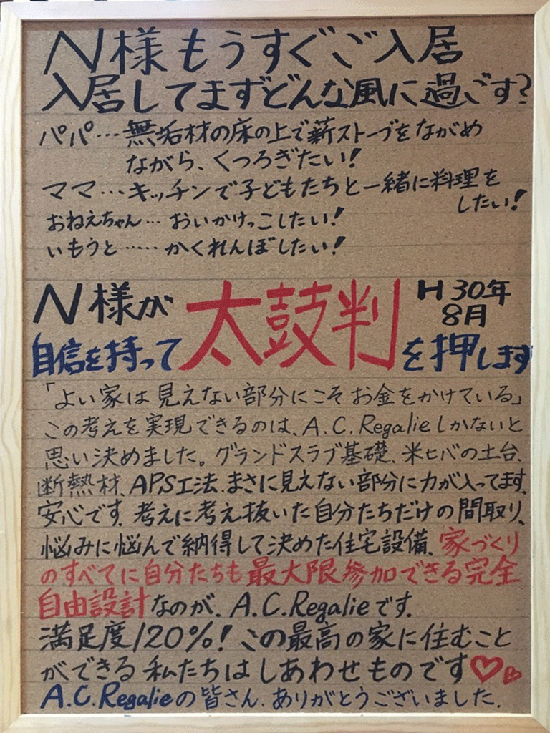 N様もうすぐご入居
入居してまずどんな風に過ごす?
パパ…無垢材の床の上で薪ストーブをながめ
ながら、くつろぎたい!
ママ…キッチンで子どもたちと一緒に料理を
したい!
おねえちゃん…おいかけっこしたい!
いもうと……かくれんぼしたい!
N様が
自信を持って太鼓判を押します
H30年
8月
「よい家は見えない部分にこそお金をかけている」
この考えを実現できるのは、A.C.Regalieしかないと
思い決めました。グランドスラブ基礎、米ヒバの土台、
断熱材、APS工法、まさに見えない部分に力が入ってます。
安心です。考えに考え抜いた自分たちだけの間取り、
悩みに悩んで納得して決めた住宅設備、家づくり
のすべてに自分たちも最大限参加できる完全
自由設計なのが、A.C.Regalieです。
満足度120%!この最高の家に住むこと
ができる私たちはしあわせものです♡♡
A.C.Regalieの皆さん、ありがとうございました。